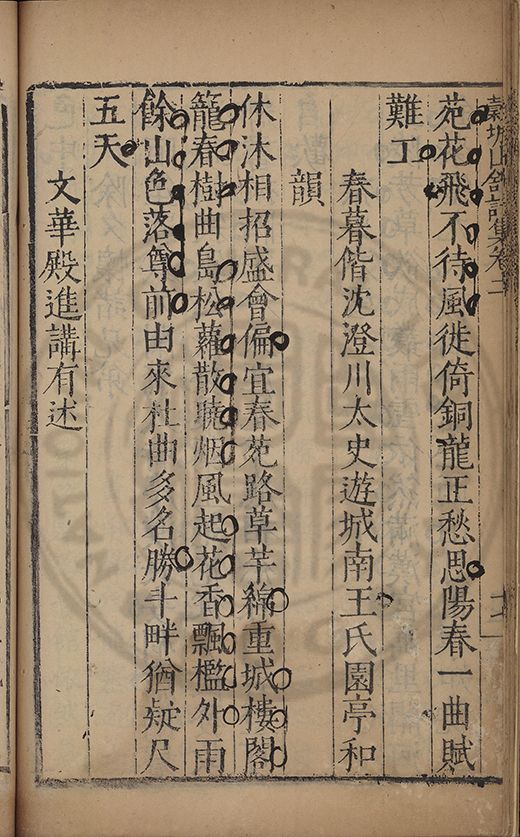 穀城山舘詩集卷十二
苑花飛不待風徙倚銅龍正愁思陽春一曲賦
難工
春暮偕沈澄川太史遊城南王氏園亭和
韻
休沐相招盛會偏宜春苑路草芊綿重城樓閣
籠春樹曲島松蘿散曉烟風起花香飄檻外雨
餘山色落尊前由來杜曲多名勝斗畔猶疑尺
五天
文華殿進講有述